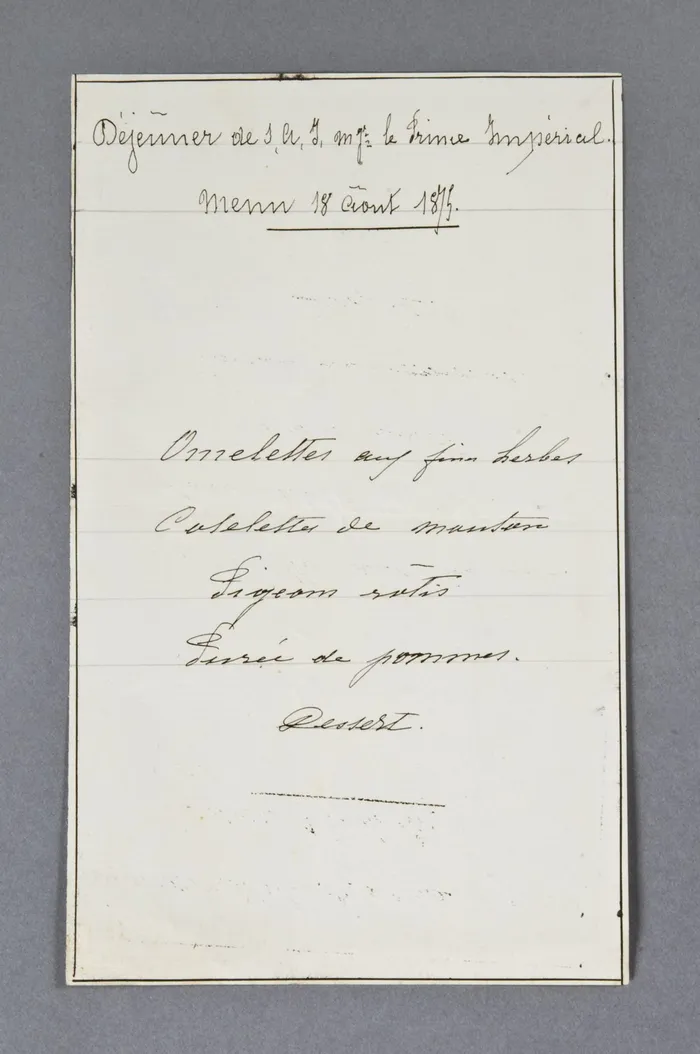 Déjeūner de S, A, I, mgr le Prince Impérial.
Menu 18 Aōut 1875.
Omelettes aux fines herbes
Cotelettes de mouton
Pigeons rôtis
Purée de pommes.
Dessert.